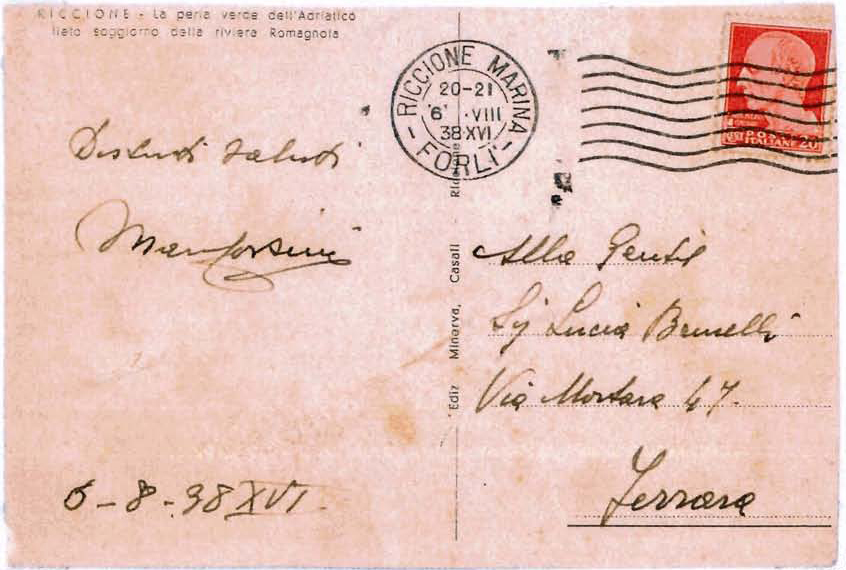 RICCIONE - La perla verde dell'Adriatico
lieto soggiorno della riviera Romagnola
RICCIONE MARINA
20-21
6 . VIII
38 XVI
- FORLI' -
POSTE
ITALIANE 20
Distinti saluti
6-8-38 XVI.
Ediz Minerva, Casali Riccione
Alla Gentil
Sig Lucia Brunelli
Via Mortara 47.
Ferrara